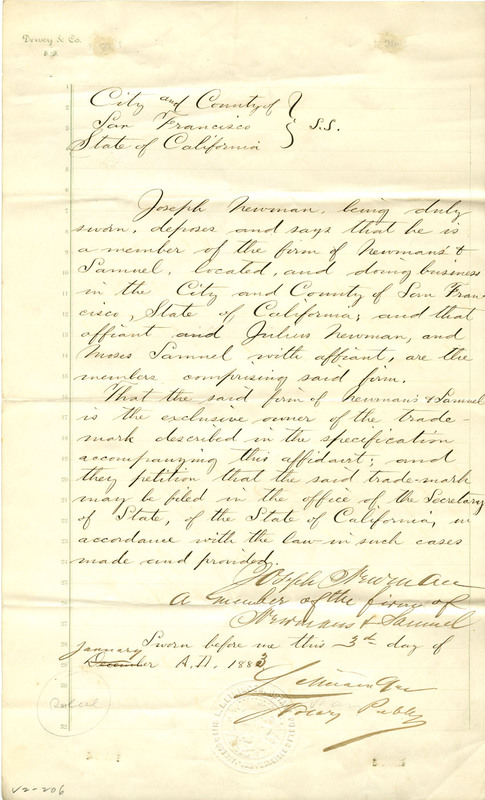 Dewey & Co.
S.F.
City and County of
San Francisco } S.S.
State of California
Joseph Newman, being duly
sworn, deposes and says that he is
a member of the firm of Newmans' &
Samuel, located, and doing business
in the City and County of San Fran-
cisco, State of California; and that
affiant and Julius Newman, and
Moses Samuel with affiant, are the
members comprising said firm.
That the said firm of Newmans' & Samuel
is the exclusive owner of the trade-
mark described in the specification
accompanying this affidavit; and
they petition that the said trade-mark
may be filed in the office of the Secretary
of State, of the State of California, in
accordance with the law in such cases
made and provided.
Joseph Newman
A member of the firm of
Newmans & Samuel
Sworn before me this 3rd day of
January
December A.D. 1883
Notary Public
V2-206